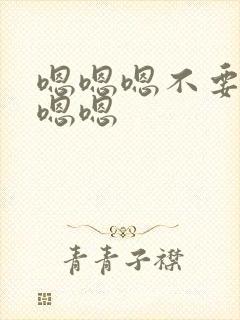 嗯嗯嗯不要
嗯嗯
青青子襟